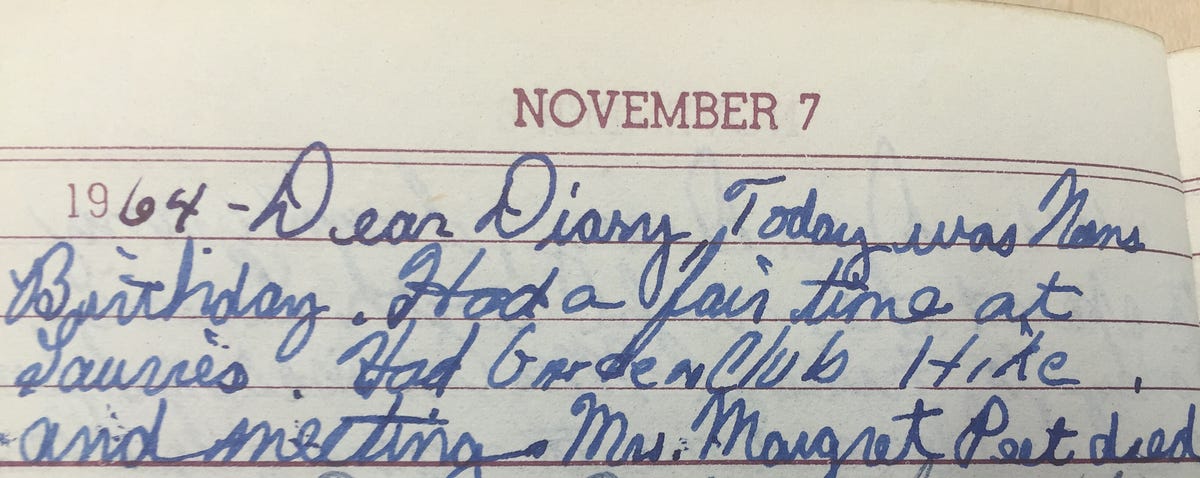 NOVEMBER 7
1964 - Dear Diary, Today was Nans
Birthday. Had a fair time at
Laurie's. Had Garden Club Hike,
and meeting. Mrs. Margret Peet died